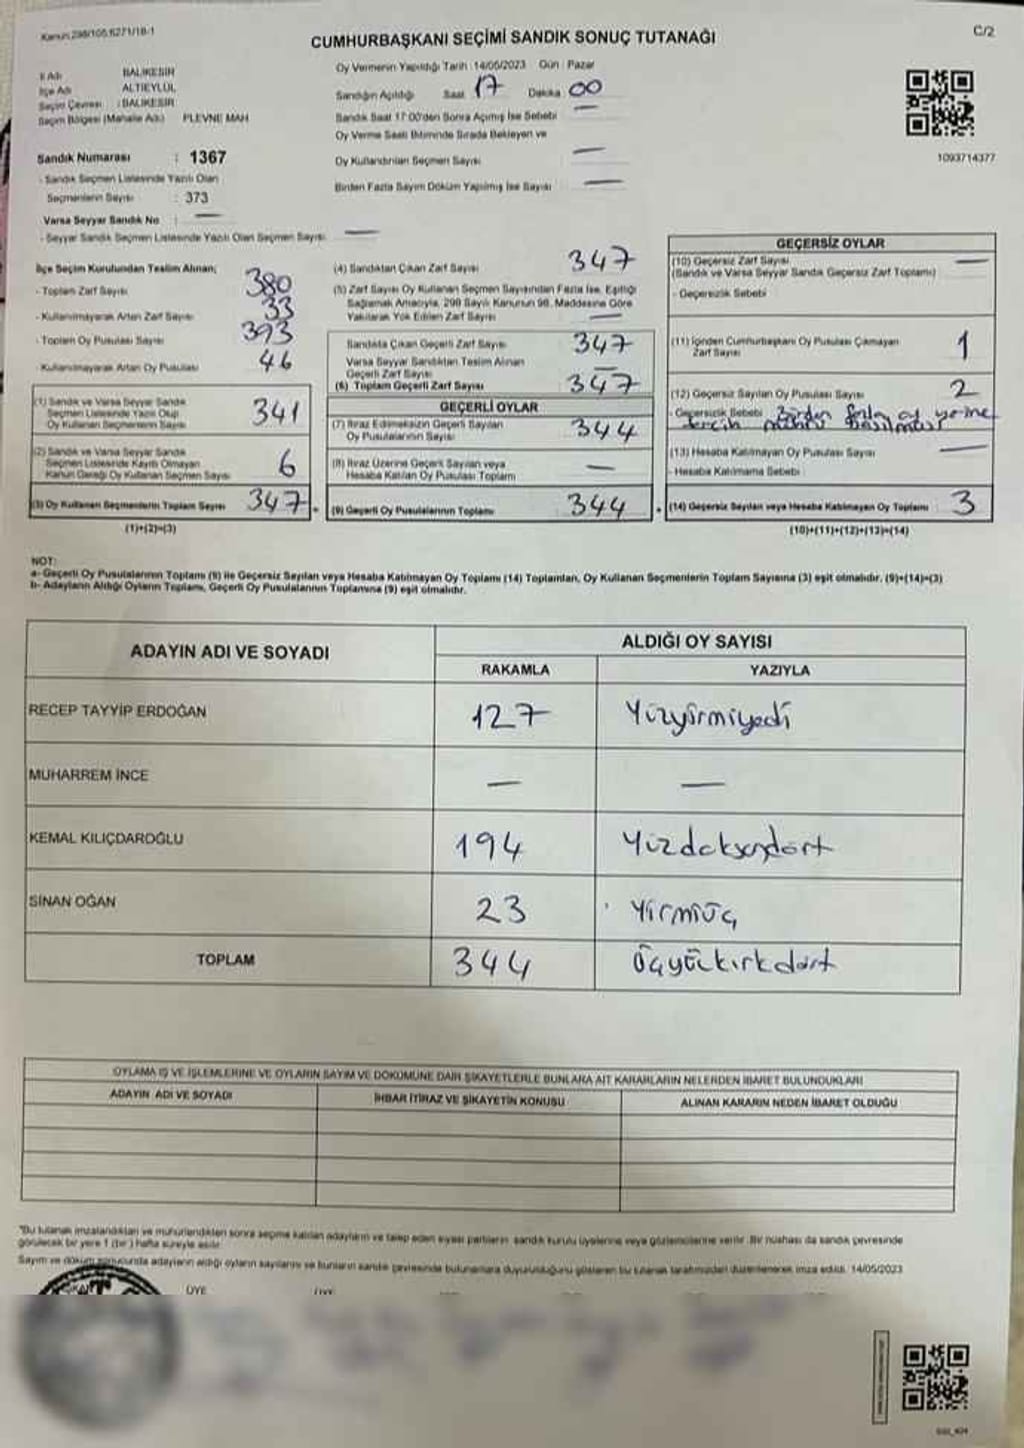 Kanun:298/105:6271/18-1
C/2
CUMHURBAŞKANI SEÇİMİ SANDIK SONUÇ TUTANAĞI
İl Adı BALIKESİR
İlçe Adı ALTIEYLÜL
Seçim Çevresi : BALIKESİR
Seçim Bölgesi (Mahalle Adı) PLEVNE MAH
Sandık Numarası : 1367
- Sandık Seçmen Listesinde Yazılı Olan
Seçmenlerin Sayısı : 373
Varsa Seyyar Sandık No : —
- Seyyar Sandık Seçmen Listesinde Yazılı Olan Seçmen Sayısı —
Oy Vermenin Yapıldığı Tarih : 14/05/2023 Gün : Pazar
Sandığın Açıldığı Saat 17 Dakika 00
Sandık Saat 17:00'den Sonra Açılmış İse Sebebi —
Oy Verme Saati Bitiminde Sırada Bekleyen ve
Oy Kullandırılan Seçmen Sayısı —
Birden Fazla Sayım Döküm Yapılmış İse Sayısı —
1093714377
İlçe Seçim Kurulundan Teslim Alınan;
- Toplam Zarf Sayısı 380
- Kullanılmayarak Artan Zarf Sayısı 33
- Toplam Oy Pusulası Sayısı 393
- Kullanılmayarak Artan Oy Pusulası 46
(1) Sandık ve Varsa Seyyar Sandık
Seçmen Listesinde Yazılı Olup
Oy Kullanan Seçmenlerin Sayısı 341
(2) Sandık ve Varsa Seyyar Sandık
Seçmen Listesinde Kayıtlı Olmayan
Kanun Gereği Oy Kullanan Seçmen Sayısı 6
(3) Oy Kullanan Seçmenlerin Toplam Sayısı 347
(1)+(2)=(3)
(4) Sandıktan Çıkan Zarf Sayısı 347
(5) Zarf Sayısı Oy Kullanan Seçmen Sayısından Fazla İse, Eşitliği
Sağlamak Amacıyla, 298 Sayılı Kanunun 98. Maddesine Göre
Yakılarak Yok Edilen Zarf Sayısı —
Sandıkta Çıkan Geçerli Zarf Sayısı 347
Varsa Seyyar Sandıktan Teslim Alınan
Geçerli Zarf Sayısı —
(6) Toplam Geçerli Zarf Sayısı 347
GEÇERLİ OYLAR
(7) İtiraz Edilmeksizin Geçerli Sayılan
Oy Pusulalarının Sayısı 344
(8) İtiraz Üzerine Geçerli Sayılan veya
Hesaba Katılan Oy Pusulası Toplamı —
(9) Geçerli Oy Pusulalarının Toplamı 344
GEÇERSİZ OYLAR
(10) Geçersiz Zarf Sayısı —
(Sandık ve Varsa Seyyar Sandık Geçersiz Zarf Toplamı)
- Geçersizlik Sebebi
(11) İçinden Cumhurbaşkanı Oy Pusulası Çıkmayan
Zarf Sayısı 1
(12) Geçersiz Sayılan Oy Pusulası Sayısı 2
- Geçersizlik Sebebi Birden fazla oy yerine
tercih mührü basılmıştır
(13) Hesaba Katılmayan Oy Pusulası Sayısı —
- Hesaba Katılmama Sebebi
(14) Geçersiz Sayılan veya Hesaba Katılmayan Oy Toplamı 3
(10)+(11)+(12)+(13)=(14)
NOT:
a- Geçerli Oy Pusulalarının Toplamı (9) ile Geçersiz Sayılan veya Hesaba Katılmayan Oy Toplamı (14) Toplamları, Oy Kullanan Seçmenlerin Toplam Sayısına (3) eşit olmalıdır. (9)+(14)=(3)
b- Adayların Aldığı Oyların Toplamı, Geçerli Oy Pusulalarının Toplamına (9) eşit olmalıdır.
ADAYIN ADI VE SOYADI
ALDIĞI OY SAYISI
RAKAMLA YAZIYLA
RECEP TAYYİP ERDOĞAN 127 Yüzyirmiyedi
MUHARREM İNCE — —
KEMAL KILIÇDAROĞLU 194 Yüzdoksandört
SİNAN OĞAN 23 Yirmiüç
TOPLAM 344 Üçyüzkırkdört
OYLAMA İŞ VE İŞLEMLERİNE VE OYLARIN SAYIM VE DÖKÜMÜNE DAİR ŞİKAYETLERLE BUNLARA AİT KARARLARIN NELERDEN İBARET BULUNDUKLARI
ADAYIN ADI VE SOYADI İHBAR İTİRAZ VE ŞİKAYETİN KONUSU ALINAN KARARIN NEDEN İBARET OLDUĞU
"Bu tutanak imzalandıktan ve mühürlendikten sonra seçime katılan adayların ve talep eden siyasi partilerin sandık kurulu üyelerine veya gözlemcilerine verilir. Bir nüshası da sandık çevresinde
görülecek bir yere 1 (bir) hafta süreyle asılır.
Sayım ve döküm sonucunda adayların aldığı oyların sayılarını ve bunların sandık çevresinde bulunanlara duyurulduğunu gösteren bu tutanak tarafımızdan düzenlenerek imza edildi. 14/05/2023
ÜYE